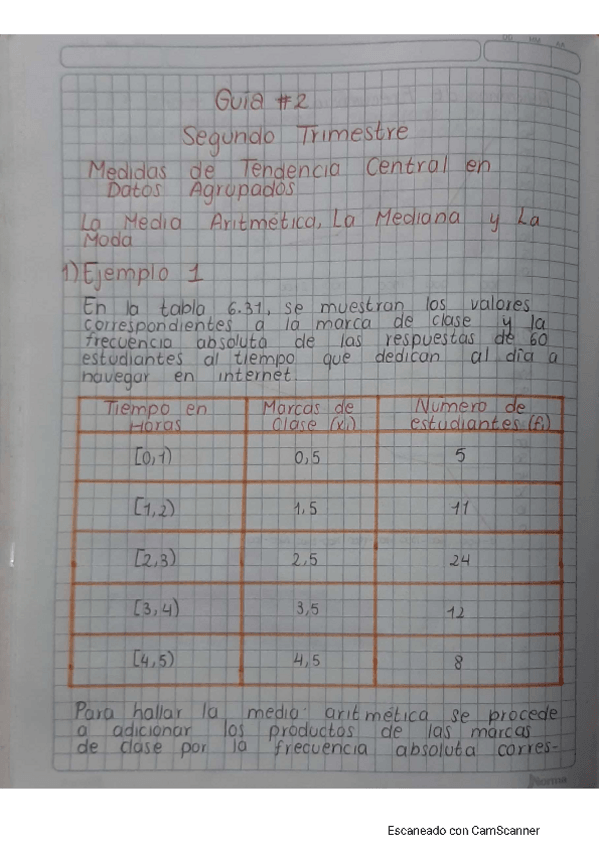 Guía #2
Segundo Trimestre
Medidas de Tendencia Central en
Datos Agrupados
La Media Aritmética, La Mediana y La
Moda
1) Ejemplo 1
En la tabla 6.31, se muestran los valores
correspondientes a la marca de clase y la
frecuencia absoluta de las respuestas de 60
estudiantes al tiempo que dedican al día a
navegar en internet.
Tiempo en Horas | Marcas de Clase (xi) | Número de estudiantes (fi)
[0,1) 0,5 5
[1,2) 1,5 11
[2,3) 2,5 24
[3,4) 3,5 12
[4,5) 4,5 8
Para hallar la media aritmética se procede
a adicionar los productos de las marcas
de clase por la frecuencia absoluta corres-
Norma
Escaneado con CamScanner